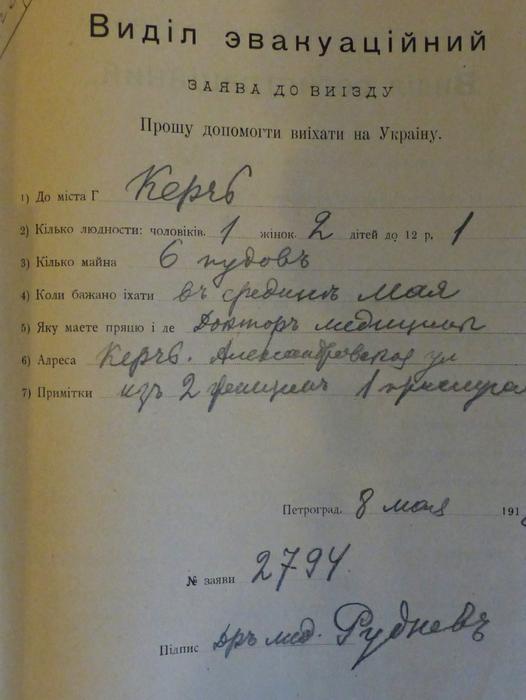 Виділ эвакуаційний
ЗАЯВА ДО ВИІЗДУ
Прошу допомогти виіхати на Украіну.
1) До міста Г Керчь
2) Кілько людности: чоловіків. 1 жінок. 2 дітей до 12 р. 1
3) Кілько майна 6 пудовъ
4) Коли бажано іхати въ срединѣ Мая
5) Яку маєте пряцю і де Докторъ медицины
6) Адреса Керчь. Александровская ул
7) Примітки изъ 2 женщинъ 1
Петроград. 8 мая 191
№ заяви 2794
Підпис Дръ мед. Рудневъ